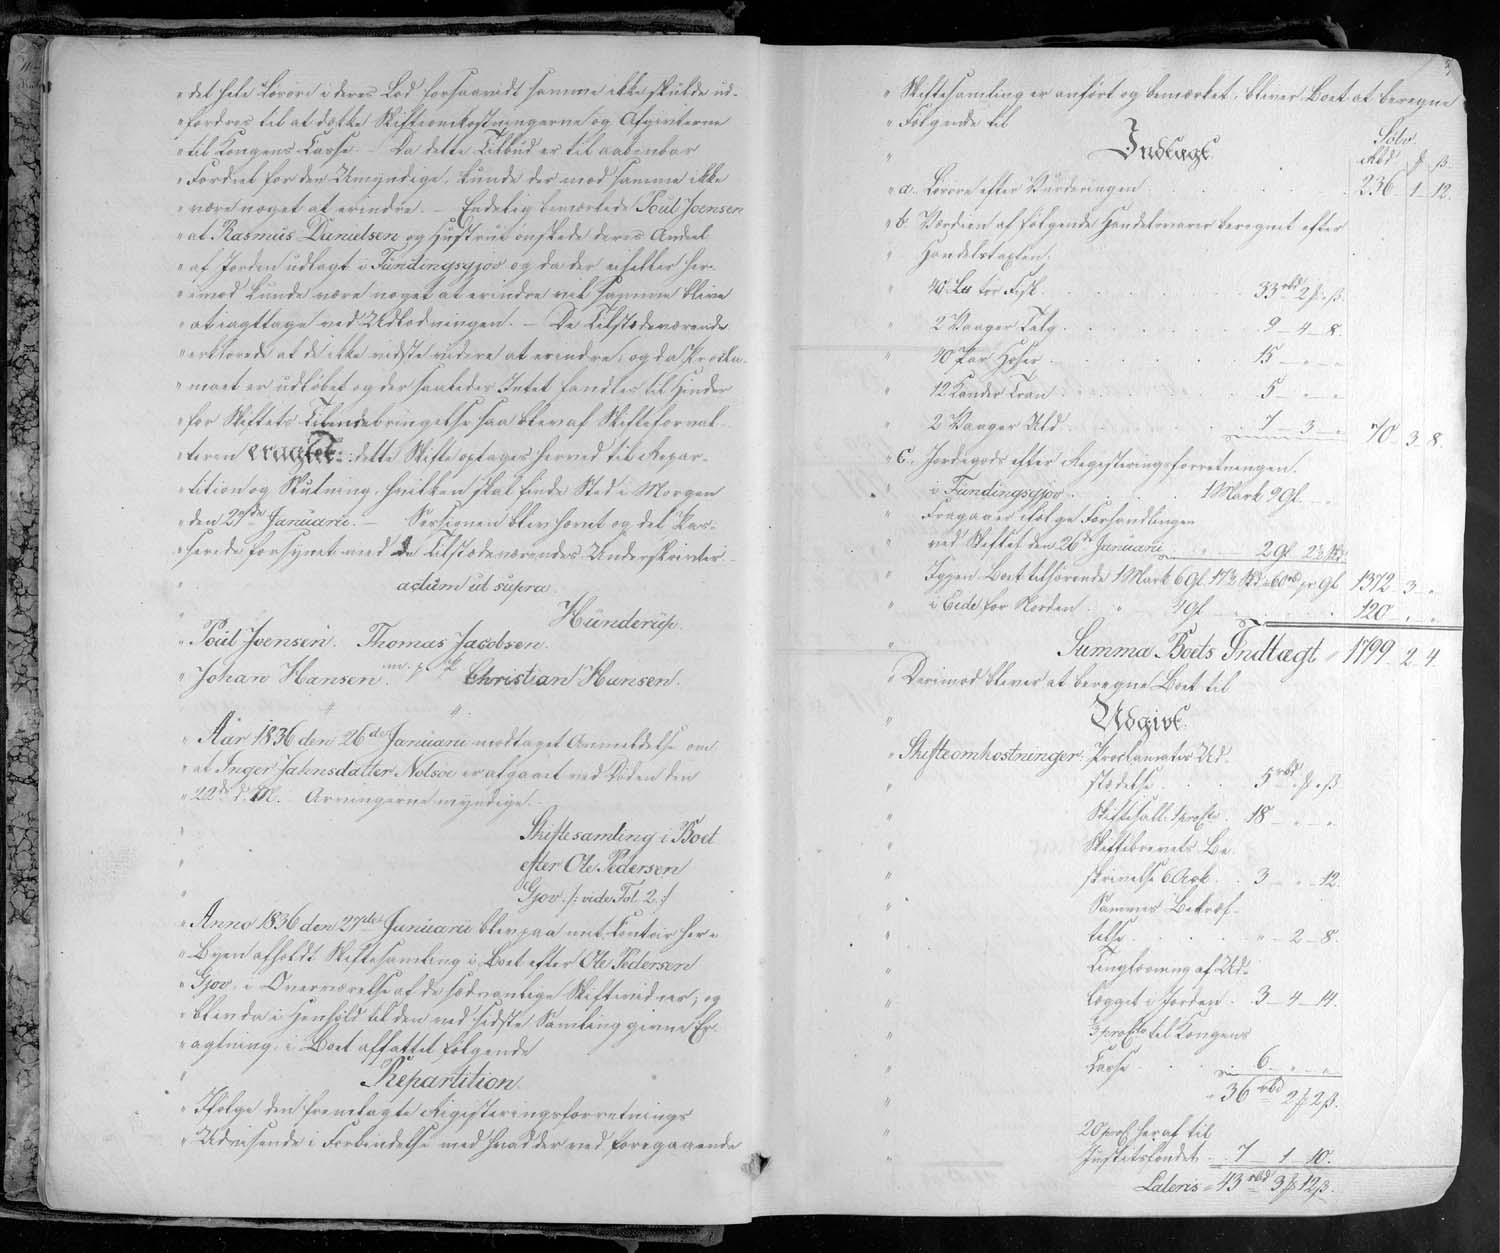 "det hele Løsøre i deres Lod forsaavidt samme ikke skulde ud-
"fordres til at dække Skifteomkostningerne og Afgivterne
"til Kongens Casse. – Da dette Tilbud er til aabenbar
"Fordeel for den Umyndige, kunde der mod samme ikke
"være noget at erindre. – Endelig bemærkede Poul Joensen
"at Rasmus Danielsen og Hustrue ønskede deres Andeel
"af Jorden udlagt i Fundingsgjov og da der ei heller her-
"imod kunde være noget at erindre vil samme blive
"at iagttage ved Udlodningen. – De Tilstædeværende
"erklærede at de ikke vidste videre at erindre, og da Procla-
"maet er udløbet og der saaledes Intet fandtes til Hinder
"for Skiftets Tilendebringelse saa blev af Skifteforval-
"teren eragtet: dette Skifte optages herved til Repar-
"tition og Slutning, hvilken skal finde Sted i Morgen
"den 27de Januarii. – Sessionen blev hævet og det Pas-
"serede forsynet med de Tilstædeværendes Underskrivter.
" actum ut supra.
" Hünderup.
"Poul Joensen. Thomas Jacobsen.
"Johan Hansen. m. f. P. Christian Hansen.
" " "
"Aar 1836 den 26de Januarii modtaget Anmeldelse om
"at Inger Jahnsdatter Nolsøe er afgaaet ved Døden den
"22de d. M. Arvingerne myndige.
" Skiftesamling i Boet
" efter Ole Pedersen
" Gjov. /: vide Fol 2 :/
"Anno 1836 den 27de Januarii blev paa mit Contoir her i
"Byen afholdt Skiftesamling i Boet efter Ole Pedersen
"Gjov, i Overværelse af de sædvanlige Skiftevidner, og
"blev da i Henhold til den ved sidste Samling givne Er-
"agtning, i Boet affattet følgende
" Repartition.
"Ifølge den fremlagte Registeringsforretnings
"Udvisende i Forbindelse med hvad der ved foregaaende
3
"Skiftesamling er anført og bemærket, bliver Boet at beregne
"Følgende til
" Indtægt. Sølv
Rbd ƒ ß
"a. Løsøre efter Vurderingen . . . . . 236 – 1 – 12.
"b. Værdien af følgende Handelsvarer beregnet efter
" Handelstaxten:
" 40 Lü tør Fisk . . . . . 33 rbd 2 ƒ " ß.
" 2 Vaager Talg . . . . . 9 – 4 – 8.
" 40 Par Hoser . . . . . 15 – " – "
" 12 Kander Tran . . . . . 5 – " – "
" 2 Vaager Uld . . . . . 7 – 3 – " 70 – 3 – 8.
"c. Jordegods efter Registeringsforretningen.
" i Fundingsgjov . . . . . 1 Mark 9 Gl. – "
" Fragaaer ifølge Forhandlingen
" ved Skiftet den 26de Januarii – " – 2 Gl. 2⅔ Skd
" Igjen Boet tilhørende 1 Mark 6 Gl. 17⅓ Skd a 60 rbd pr Gl. 1372 – 3 – "
" i Eide for Norden . " – 4 Gl. – " . . . . 120 – " – "
" Summa Boets Indtægt " 1799 – 2 – 4.
" Derimod bliver at beregne Boet til
" Udgivt.
"Skifteomkostninger. Proclamatets Ud-
" stædelse . . . . 5 rbd " ƒ " ß
" Skiftesall: 1 pro Cto . 18 – " – "
" Skiftebrevets Be-
" skrivelse 6 Ark . . 3 – " – 12.
" Sammes Bekræf-
" telse . . . . . " – 2 – 8.
" Tinglæsning af Ud-
" lægget i Jorden . 3 – 4 – 14.
" ⅓ pro Cto til Kongens
" Casse . . . . 6 – " – "
" 36 rbd 2 ƒ 2 ß.
" 20 proC. heraf til
" Justitsfondet . . 7 – 1 – 10.
Lateris " 43 rbd 3 ƒ 12 ß.